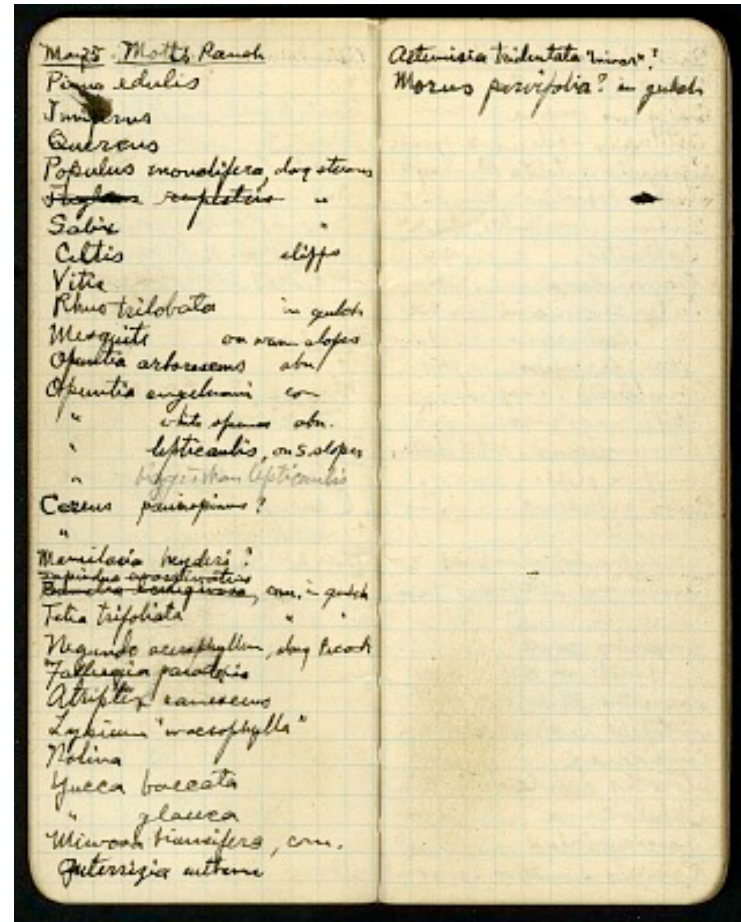 May 25 Motts Ranch
Pinus edulis
Juniperus
Quercus
Populus monolifera, along streams
rupestris "
Salix "
Celtis cliffs
Vitis
Rhus trilobata in gulch
Mesquite on warm slopes
Opuntia arborescens abn
Opuntia engelmani com
" white spines abn.
" lepticaulis, on S. slopes
" bigger than lepticaulis
Cereus paucispinus ?
"
Mamilaria heyderi ?
Sapindus
Bumelia, com. in gulch
Telia trifoliata " "
Negundo aceraphyllum, along
Fallugia paradoxa
Atriplex canescens
Lysium "macrophylla"
Nolina
Yucca baccata
" glauca
biuncifera, com.
Guterrizia
Artemisia tridentata "minor"?
Morus parvifolia? in gulch